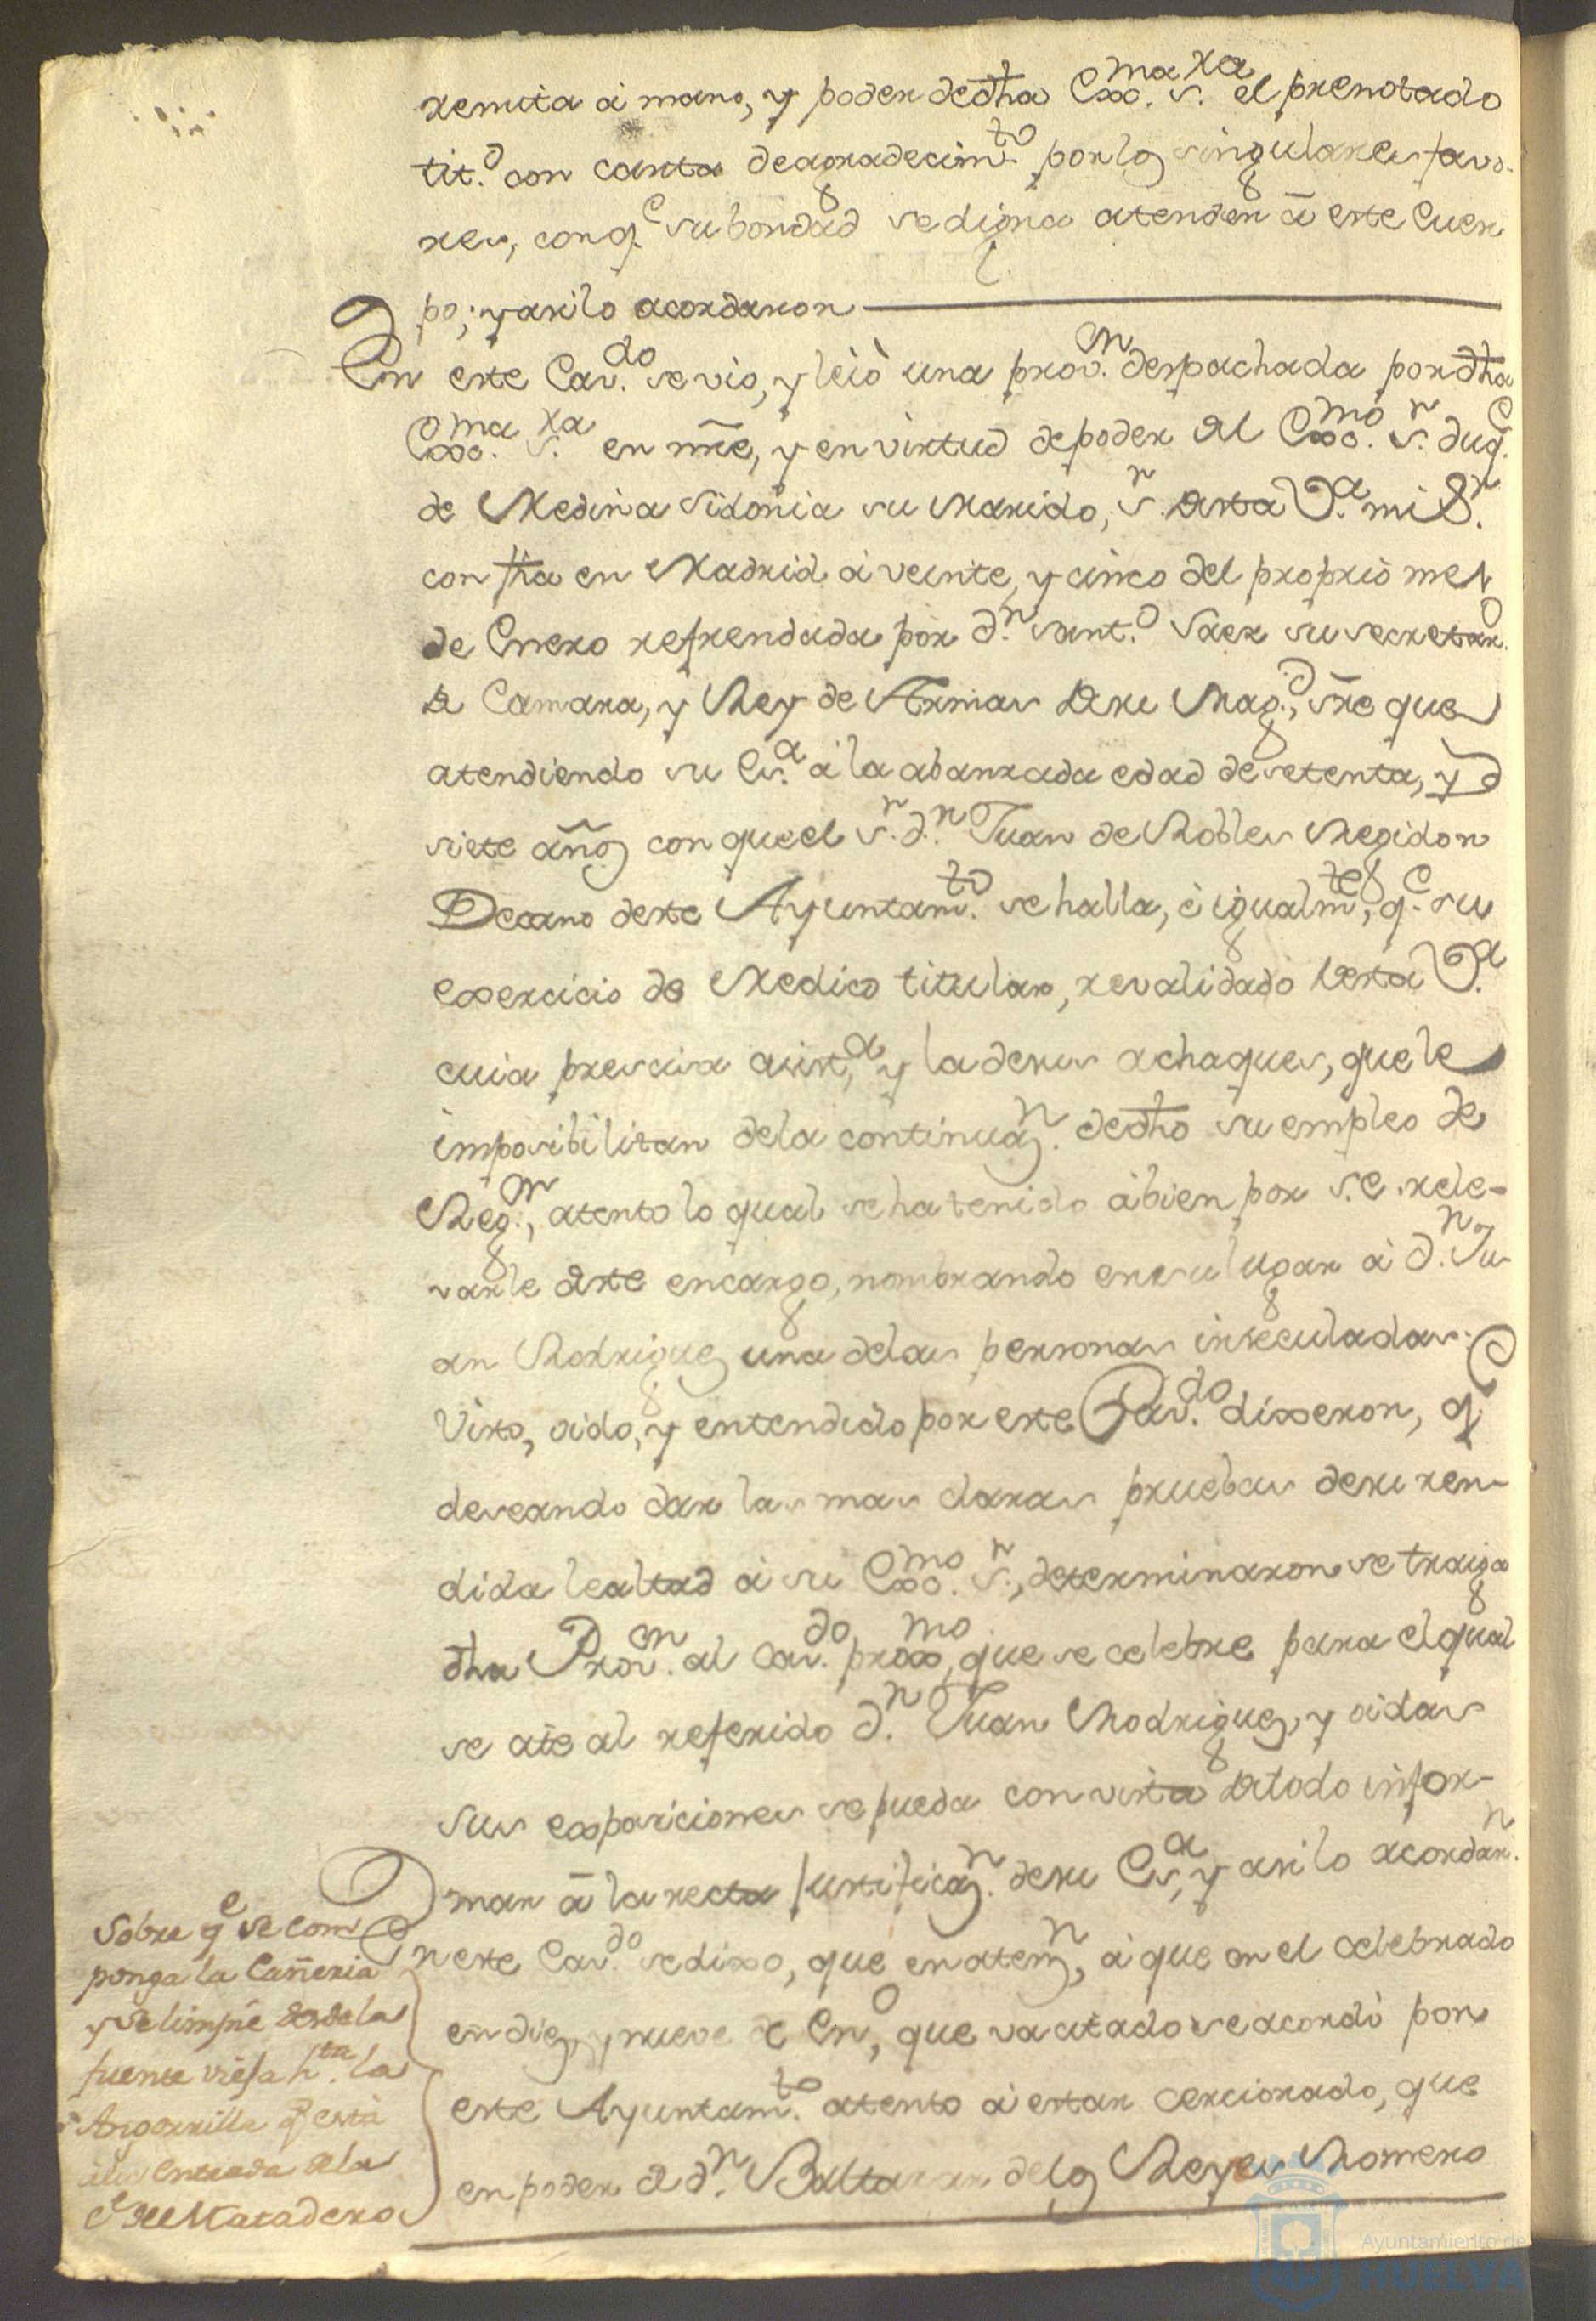 remita à mano, y poder de dha Exc.ma S.ra el prenotado
tit.o con carta de agradecim.to por los singulares favo-
res, con q.e su bondad se digna atender à este Cuer
po; y asi lo acordaron
En este Cav.do se vio, y leiò una prov.on despachada por dha
Exc.ma S.ra en nre, y en virtud de poder del Exc.mo S.r duq.e
de Medina Sidonia su Marido, s.r desta V.a mi S.r
con fha en Madrid à veinte, y cinco del proprio mes
de Enero refrendada por d.n Sant.o Saez su secretar.o
de Camara, y Rey de Armas de su Mag.d, sre que
atendiendo su Ex.a à la abanzada edad de setenta, y
siete años con que el s.r d.n Juan de Robles Regidor
Decano deste Ayuntam.to se halla, è igualm.te, q.e su
exercicio de Medico titular, revalidado desta V.a
cuia precisa asist.a y la de sus achaques, que le
imposibilitan dela continuaz.n de dho su empleo de
Reg.or, atento lo qual se ha tenido à bien por S.E. rele-
varle deste encargo, nombrando en su lugar à d.n Ju-
an Rodriguez una delas personas inseculadas.
Visto, oido, y entendido por este Cav.do dixeron, q.e
deseando dar las mas claras pruebas de su ren-
dida lealtad à su Exc.mo S.r, determinaron se traiga
dha Prov.on al Cav.do prox.mo, que se celebre para el qual
se cite al referido d.n Juan Rodriguez, y oidas
sus exposiciones se pueda con vista de todo infor-
mar à la recta justificaz.n de su Ex.a, y asi lo acordar.n
En este Cav.do se dixo, que en atenz.n, à que en el celebrado
en diez, y nueve de En.o, que va citado se acordò por
este Ayuntam.to atento à estar cercionado, que
en poder de d.n Baltasar delos Reyes Romero
Sobre q.e se com
ponga la Cañeria
y se limpie desde la
fuente vieja h.ta la
Argorrilla q.e està
àla entrada dela
C.e del Matadero
Ayuntamiento de
HUELVA